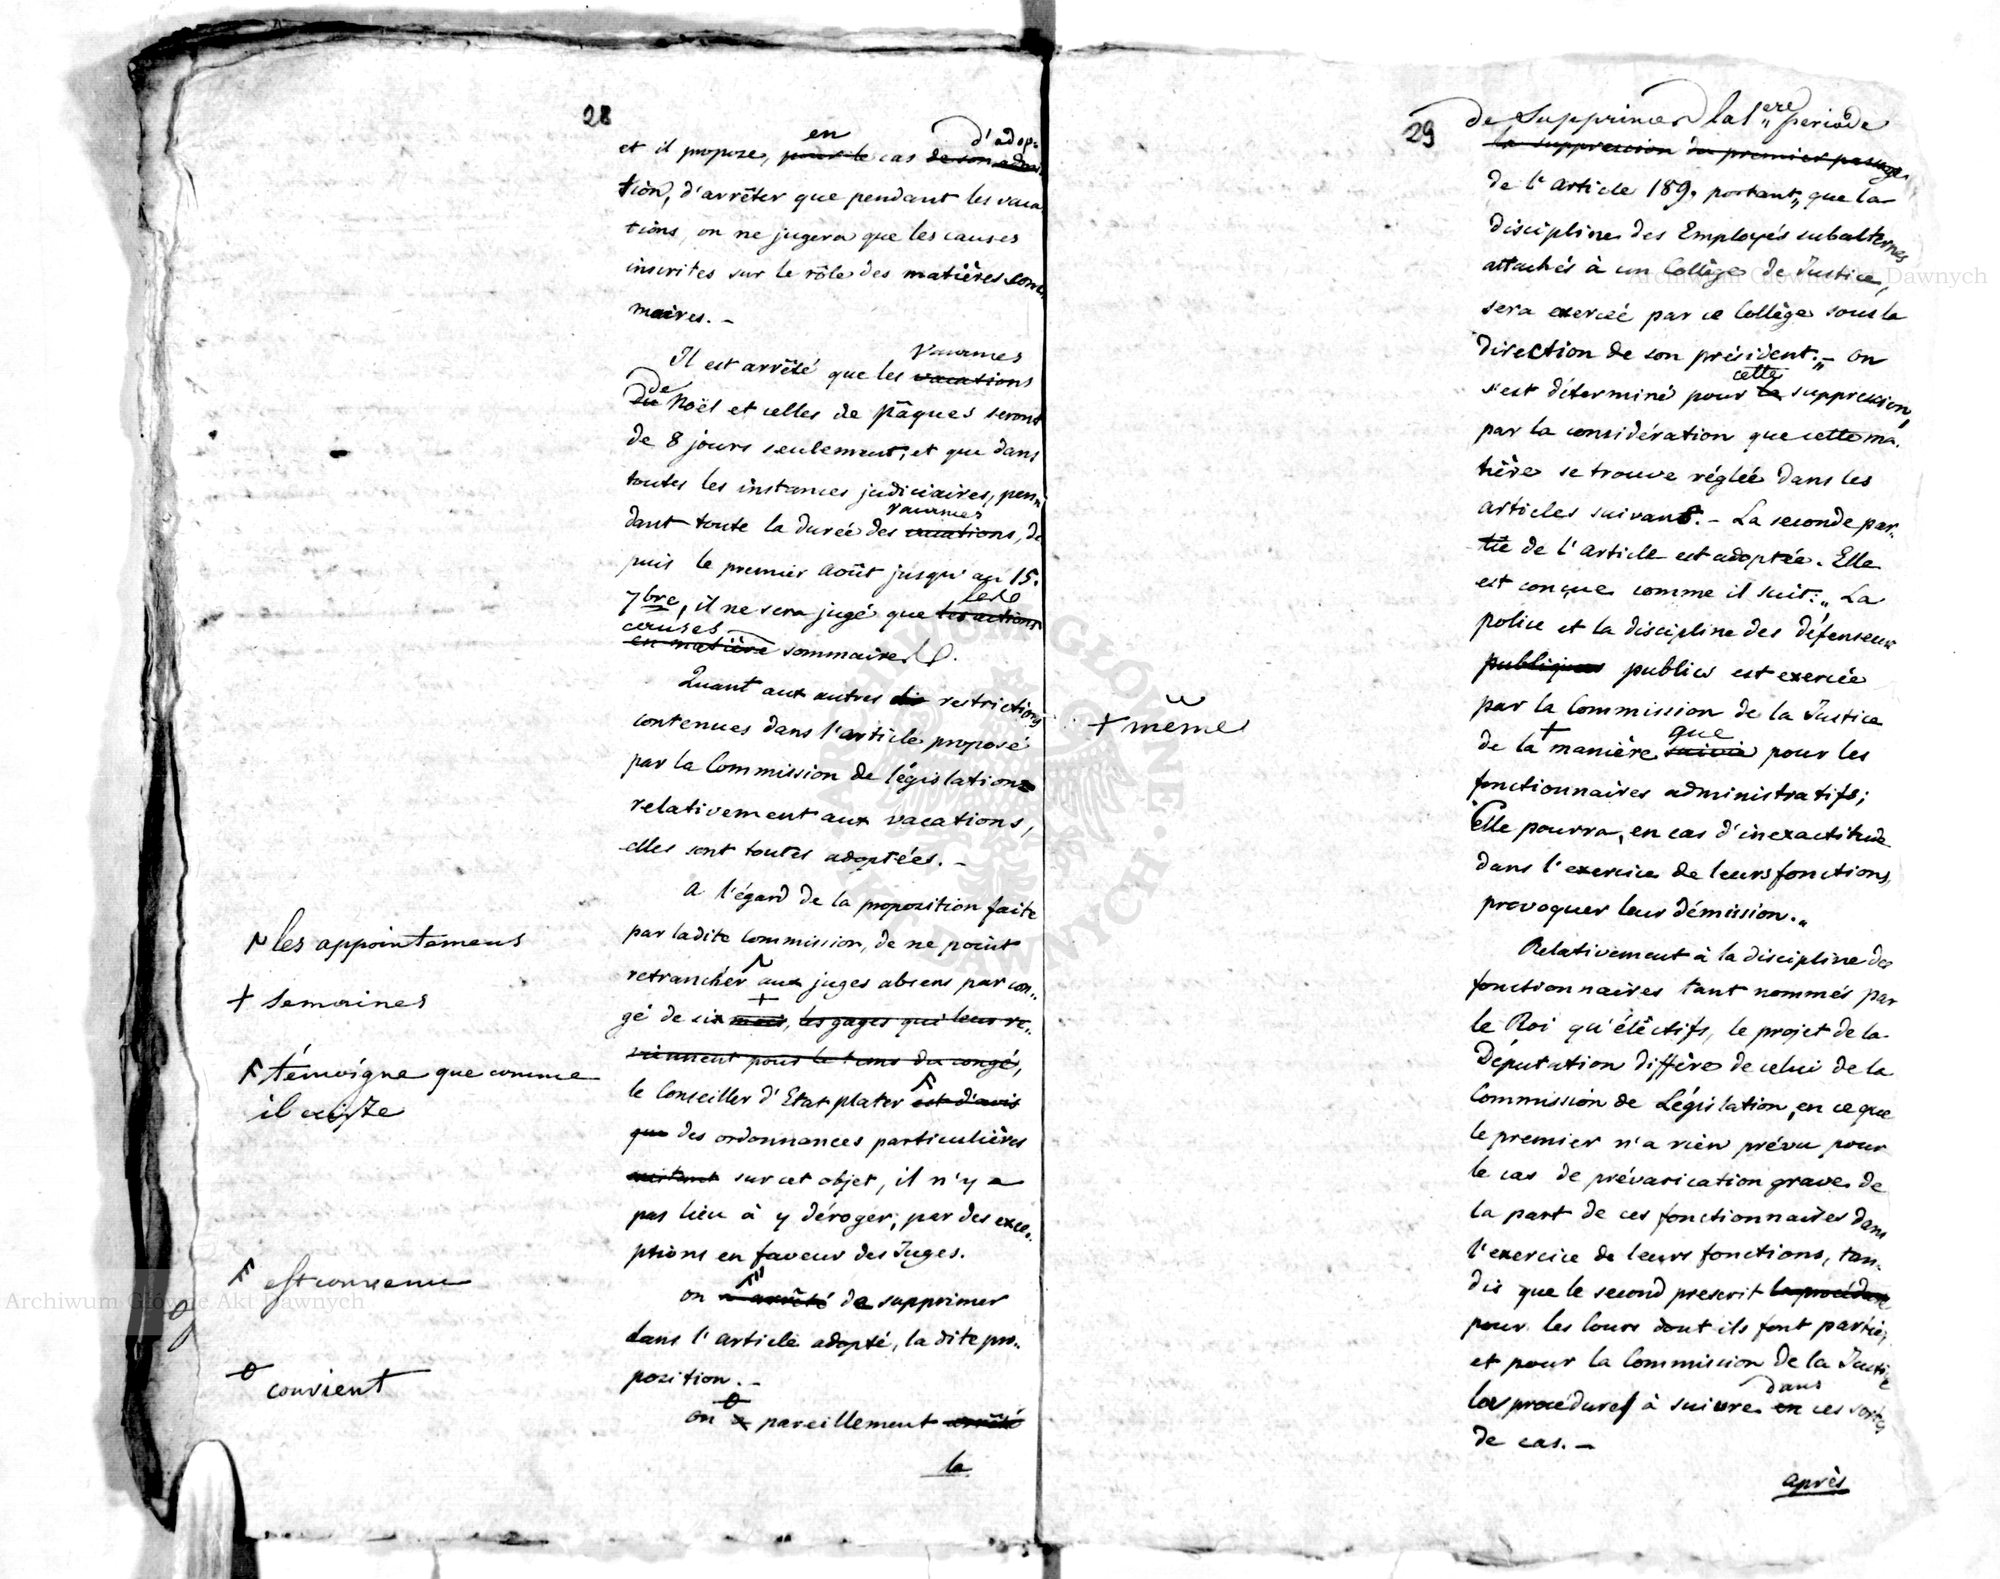 28
en d'adop-
et il propose, pour le cas de son adop-
tion, d'arrêter que pendant les vaca
tions, on ne jugera que les causes
inscrites sur le rôle des matières som
maires. -
vacances
Il est arrêté que les vacations
de
du Noël et celles de pâques seront
de 8 jours seulement, et que dans
toutes les instances judiciaires, pen-
vacances
dant toute la durée des vacations, de
puis le premier Août jusqu'au 15.
les
7bre, il ne sera jugé que les actions
causes
en matière sommaires.
Quant aux autres restrictions
contenues dans l'article proposé
par la Commission de législation
relativement aux vacations,
elles sont toutes adoptées. -
A l'égard de la proposition faite
par ladite Commission, de ne point
retrancher aux juges absens par con-
gé de six mois, les gages qui leur re-
viennent pour le tems du congé,
le Conseiller d'Etat plater est d'avis
que des ordonnances particulières
existant sur cet objet, il n'y a
pas lieu à y déroger, par des exce-
ptions en faveur des Juges.
on a arrêté de supprimer
dans l'article adopté, la dite pro-
position. -
on a pareillement arrêté
la
les appointemens
+ semaines
témoigne que comme
il existe
est convenu
convient
29
de Supprimer la 1ere periode
la suppression du premier passage
de l'article 189. portant „que la
discipline des Employés subalternes
attachés à un Collège de Justice,
sera exercée par ce Collège sous la
direction de son président.„ - on
cette
s'est déterminé pour la suppression,
par la considération que cette ma-
tière se trouve réglée dans les
articles suivans. - La seconde par-
tie de l'article est adoptée. Elle
est conçue comme il suit: „La
police et la discipline des défenseurs
publiques publics est exercée
par la Commission de la Justice
que
de la + manière suivie pour les
fonctionnaires administratifs;
Elle pourra, en cas d'inexactitude
dans l'exercice de leurs fonctions,
provoquer leur démission.„
Relativement à la discipline des
fonctionnaires tant nommés par
le Roi qu'éléctifs, le projet de la
Députation diffère de celui de la
Commission de Législation, en ce que
le premier n'a rien prévu pour
le cas de prévarication grave de
la part de ces fonctionnaires dans
l'exercice de leurs fonctions, tan-
dis que le second prescrit la procédure
pour les Cours dont ils font partie,
et pour la Commission de la Justice
dans
les procédures à suivre en ces sortes
de cas. -
après
+ même
Archiwum Główne Akt Dawnych
Archiwum Główne Akt Dawnych